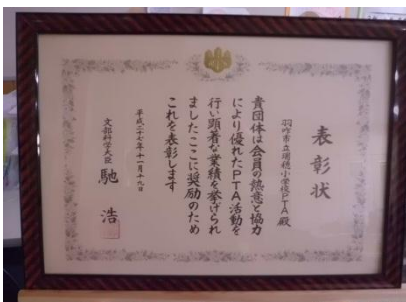 表彰状
羽咋市立瑞穂小学校PTA殿
貴団体は会員の熱意と協力
により優れたPTA活動を
行い顕著な業績を挙げられ
ましたここに奨励のため
これを表彰します
平成二十七年十一月十九日
文部科学大臣 馳 浩